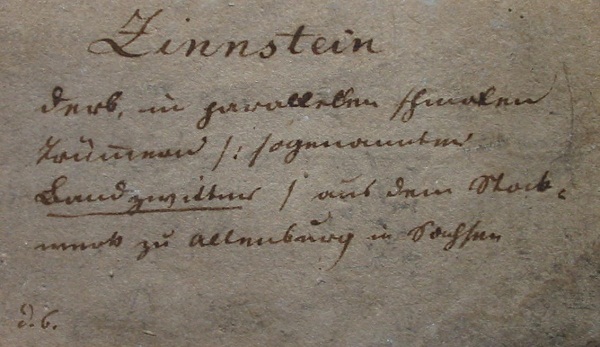 Zinnstein
derb, in parallelen schmalen
Trümmern /: sogenannter
Bandzwitter / aus dem Stock-
werk zu Altenburg in Sachsen
d. 6.